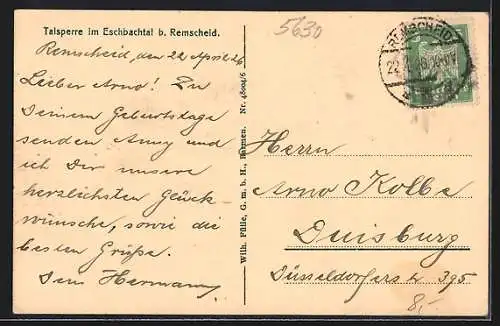 Talsperre im Eschbachtal b. Remscheid.
Remscheid, den 22 April 26
Lieber Arno! Zu
Deinem Geburtstage
senden Anny und
ich Dir unsere
herzlichsten Glück
wünsche, sowie die
besten Grüße.
Dein Hermann
Wilh. Fülle, G. m. b. H., Barmen. Nr. 48004/6
5630
REMSCHEID
Herrn
Arno Kolbe
Duisburg
Düsseldorferstr 395
8,-